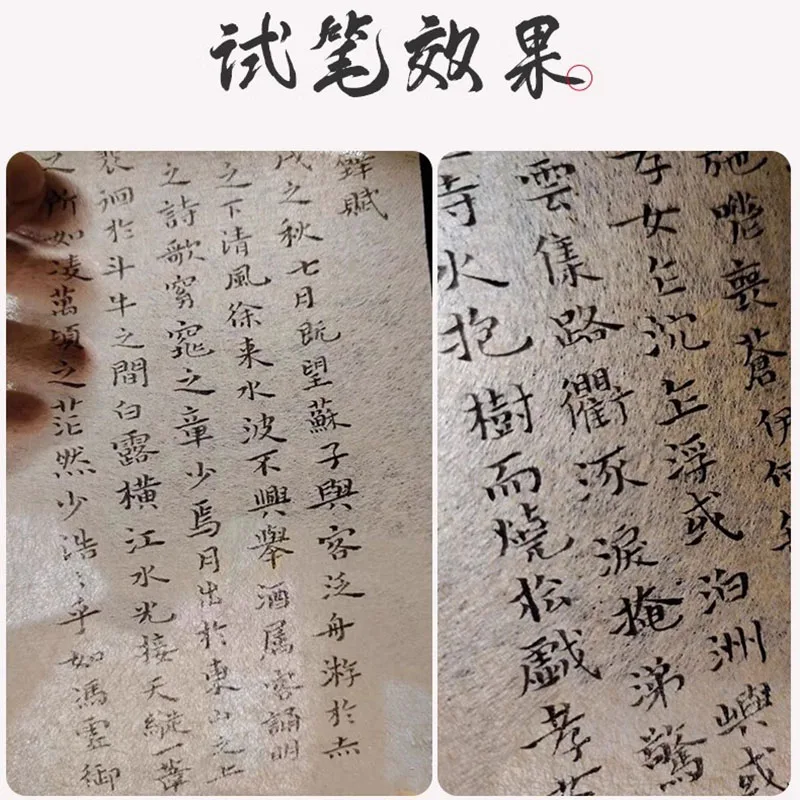 试笔效果
賦
戌之秋七月既望蘇子與客泛舟游於赤
之下清風徐来水波不興舉酒屬客誦明
之詩歌窈窕之章少焉月出於東山之上
裴徊於斗牛之間白露橫江水光接天縱一葦
之所如凌萬頃之茫然少浩々乎如馮虛御
喪蒼伊何
孝女乍沈乍浮或泊洲嶼或
雲集路衢流淚掩涕驚
水抱樹而燒於戲孝